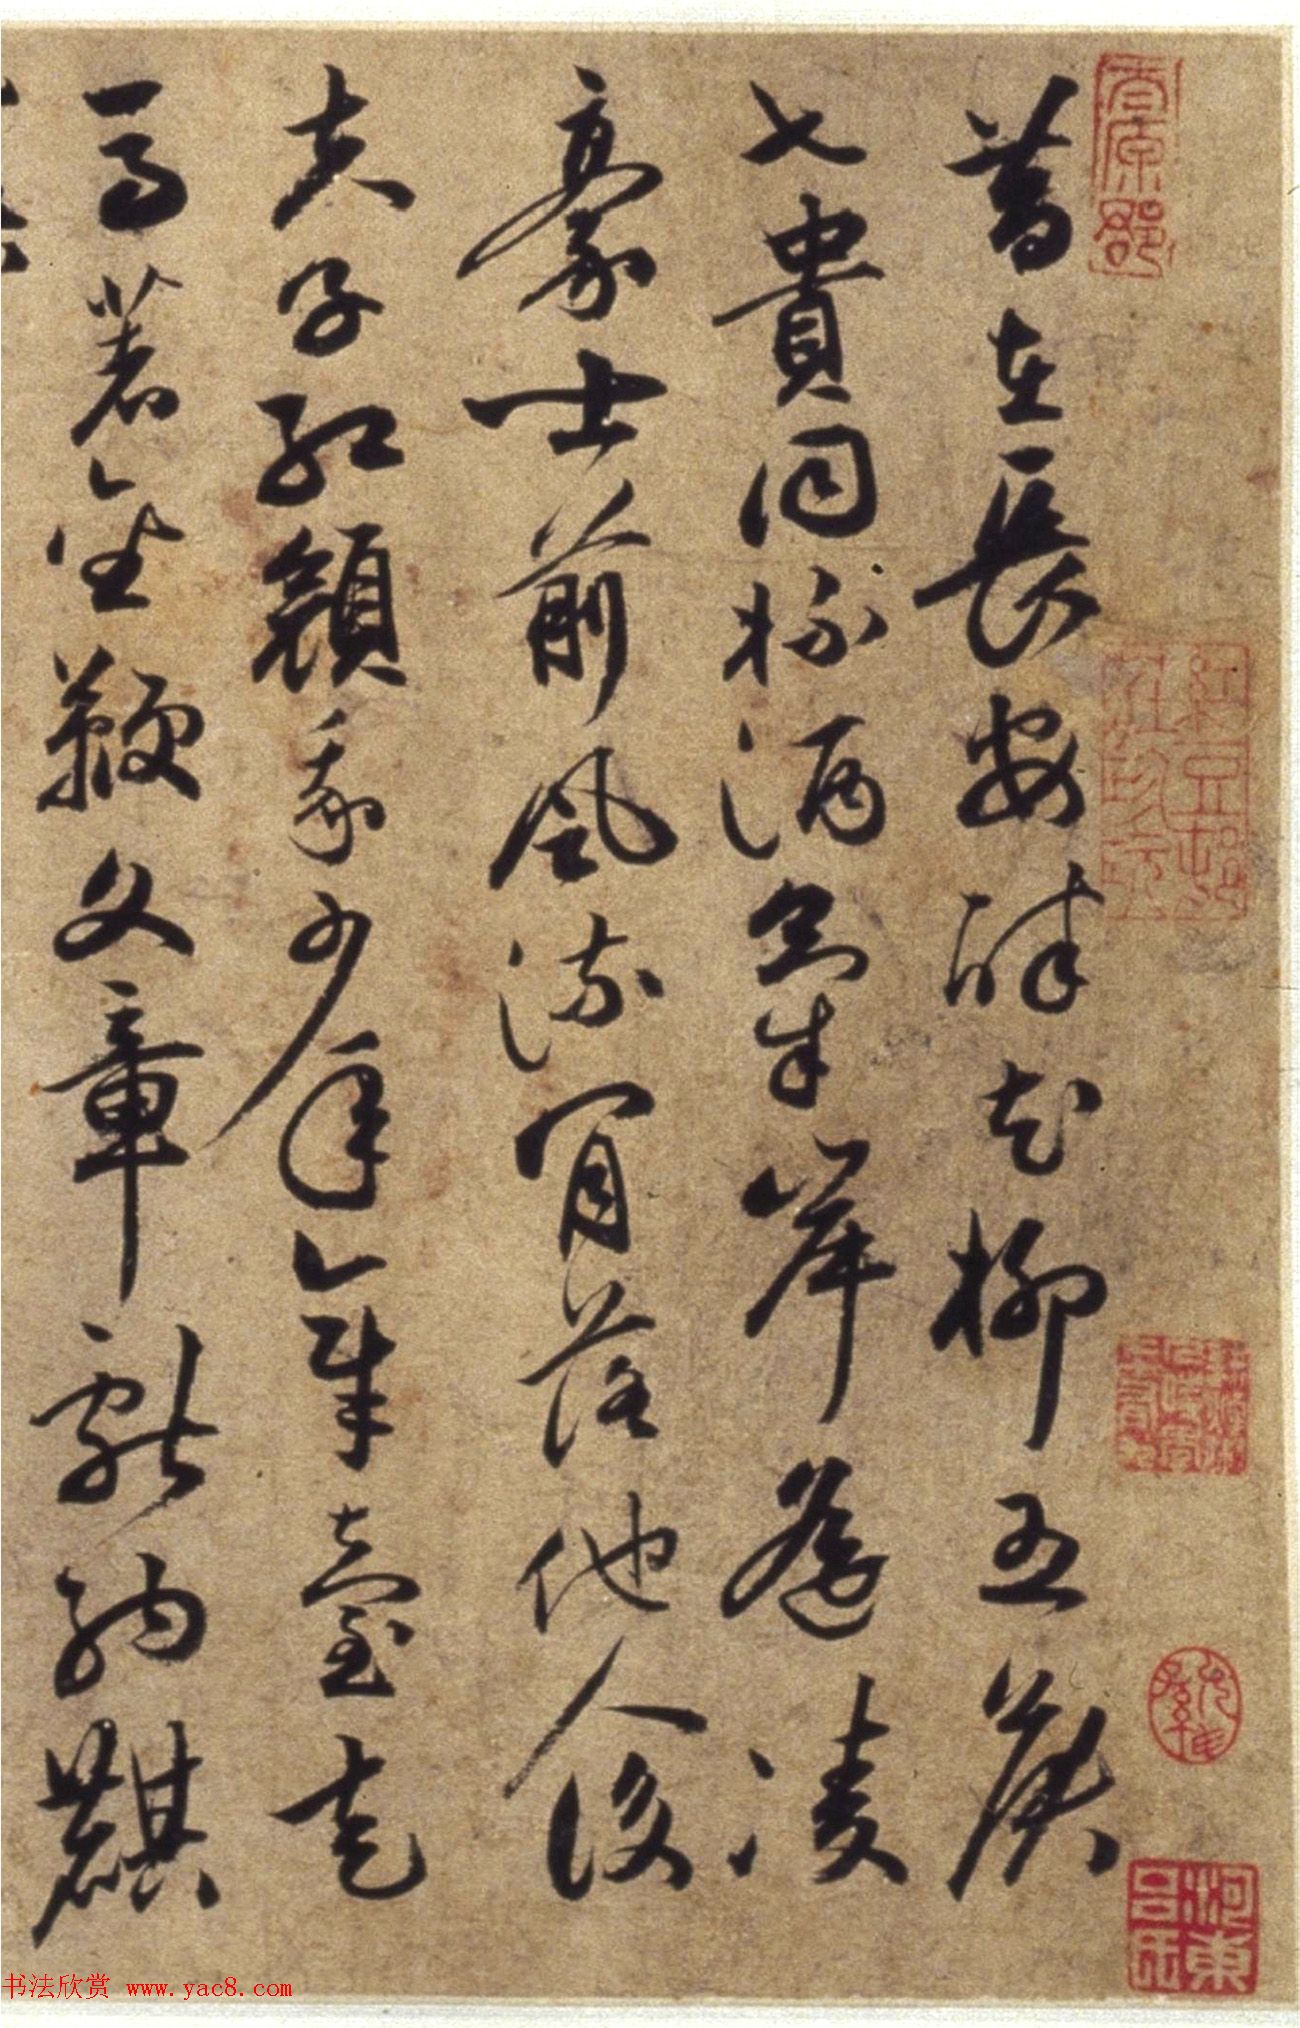 昔在長安醉花柳五侯
七貴同杯酒氣岸遙凌
豪士前風流肯落他人後
夫子紅顔我少年章臺走
馬著金鞭文章獻納麒
书法欣赏 www.yac8.com